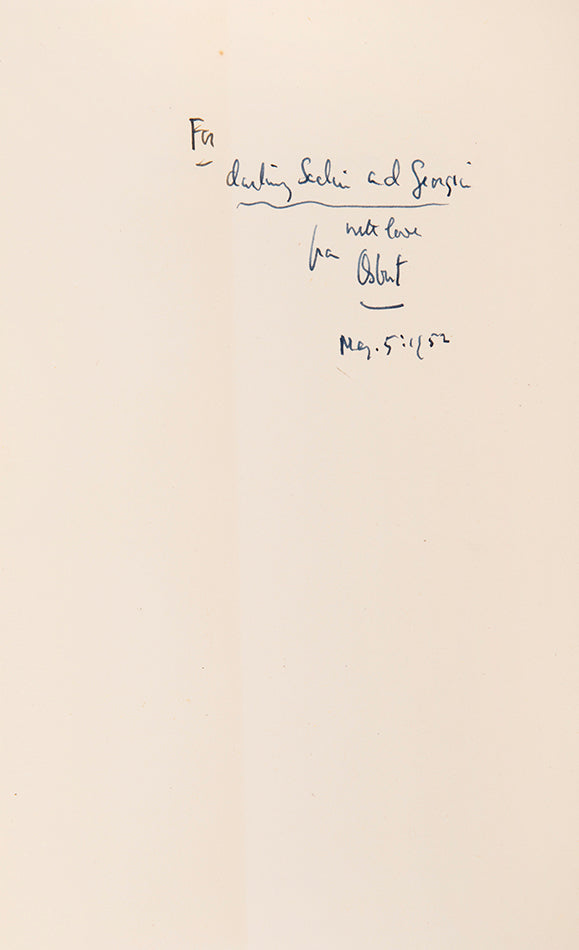 For
darling Sachie and Georgia
with love
from
Osbert
May. 5: 1952